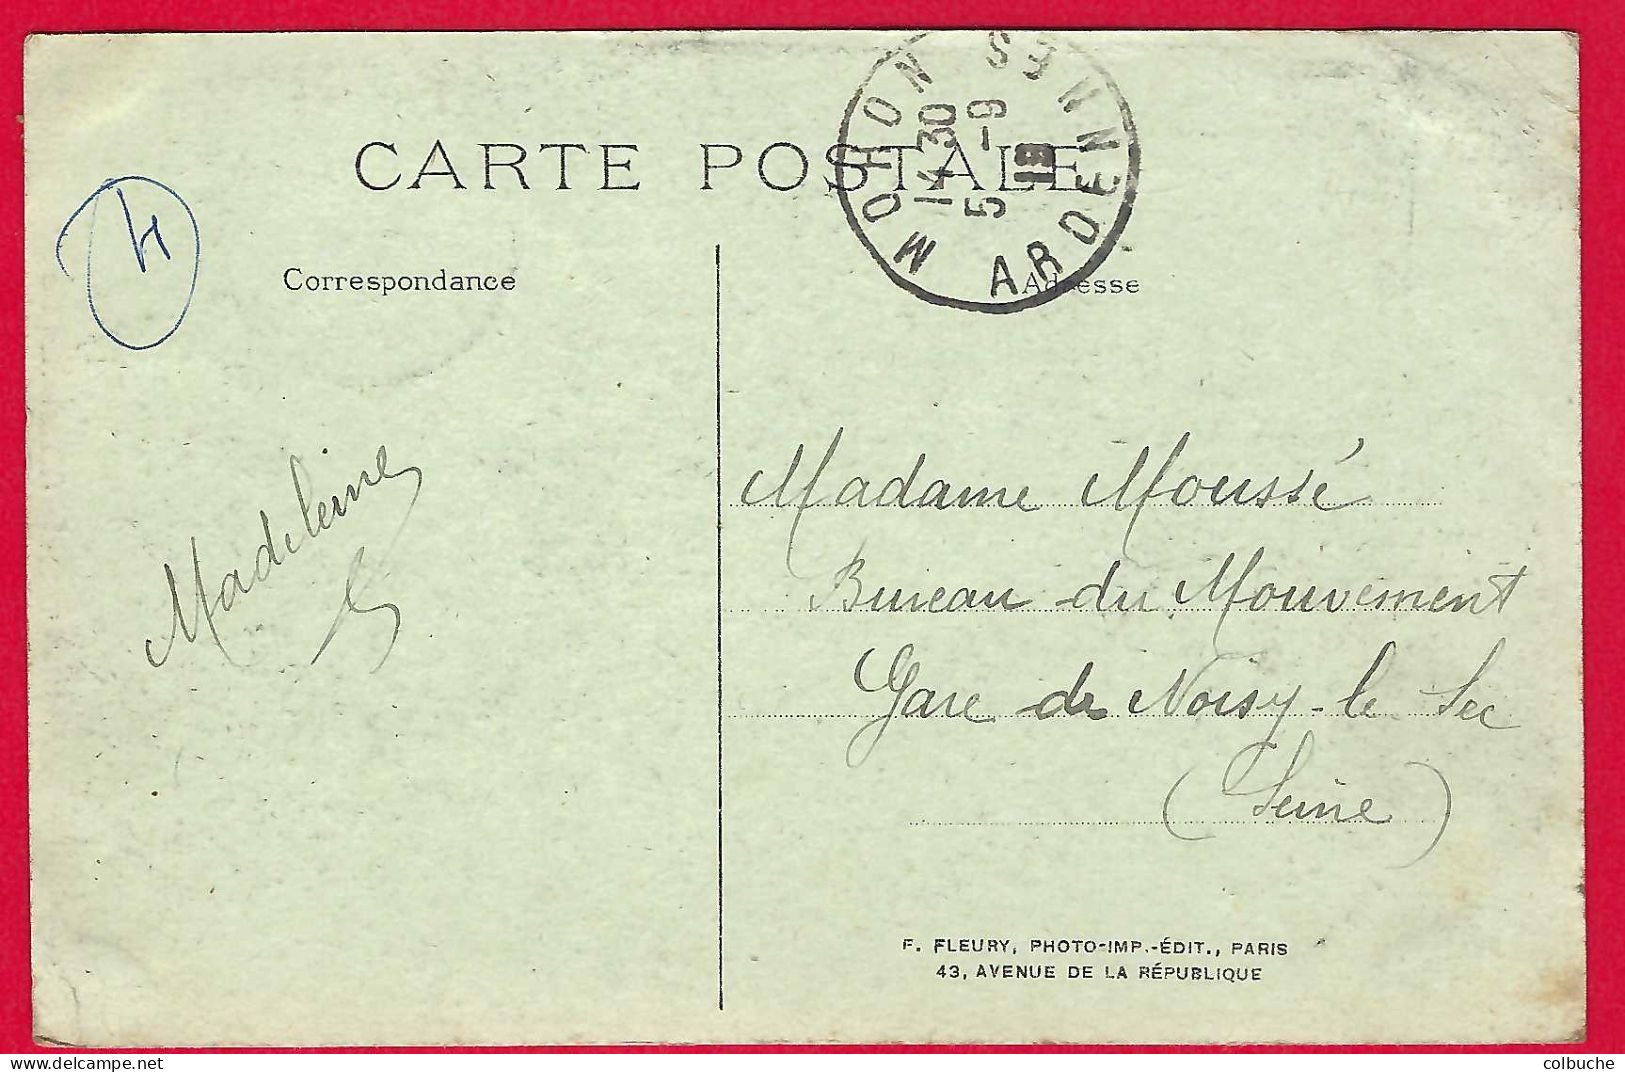 CARTE POSTALE
MOHON ARDENNES
14 30
5 -9
Correspondance
Adresse
4
Madeleine
Madame Moussé
Bureau du Mouvement
Gare de Noisy-le Sec
(Seine)
F. FLEURY, PHOTO-IMP.-ÉDIT., PARIS
43, AVENUE DE LA RÉPUBLIQUE
www.delcampe.net
colbuche